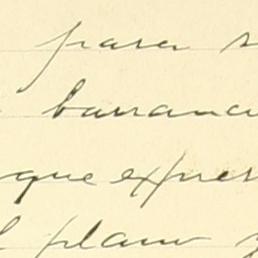 para
barranca
que expres
plano